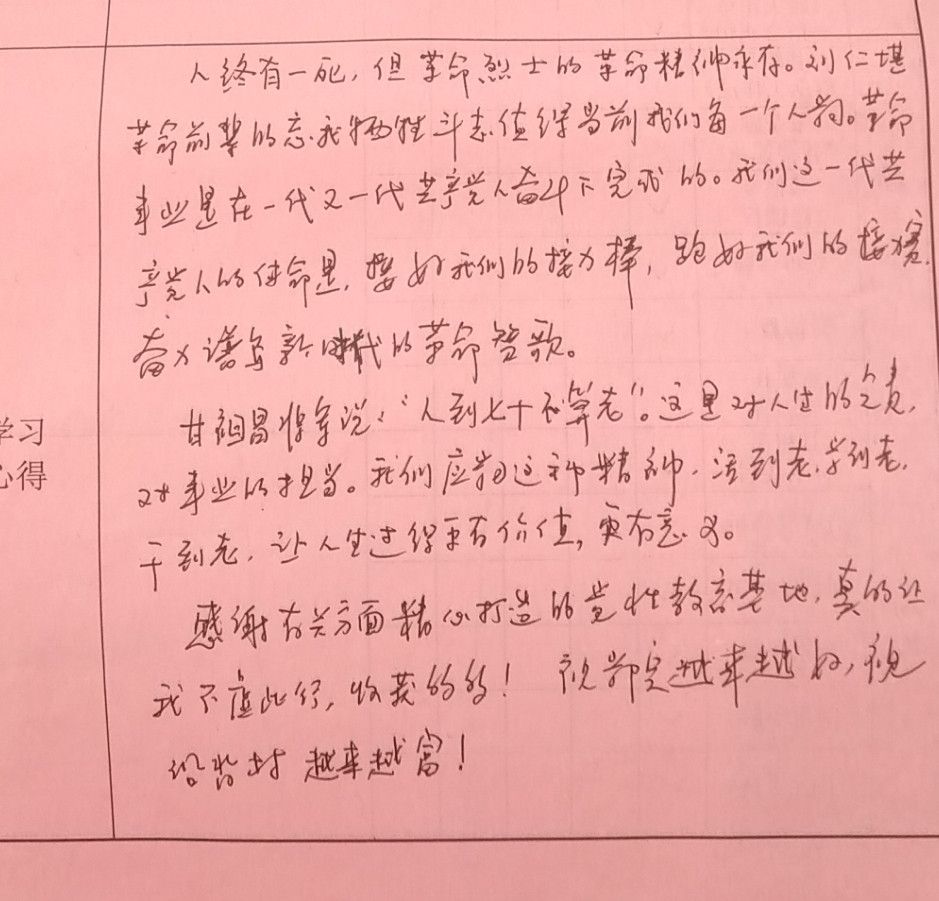 人终有一死，但革命烈士的革命精神永存。刘仁堪
革命前辈的忘我牺牲斗志值得当前我们每一个人学习。革命
事业是在一代又一代共产党人奋斗下完成的。我们这一代共
产党人的使命是，接好我们的接力棒，跑好我们的接力赛，
奋力谱写新时代的革命赞歌。
学习
心得
甘祖昌将军说："人到七十不算老"。这里对人生的负责，
对事业的担当。我们应学习这种精神，活到老，学到老，
干到老，让人生过得更有价值，更有意义。
感谢有关方面精心打造的党性教育基地，真的让
我不虚此行，收获多多！祝 越来越好，祝
沿背村越来越富！